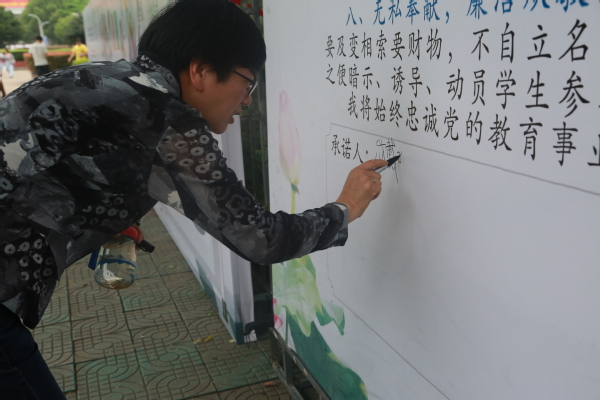 八、无私奉献，廉洁从教
要及变相索要财物，不自立名
之便暗示、诱导、动员学生参
我将始终忠诚党的教育事业
承诺人：